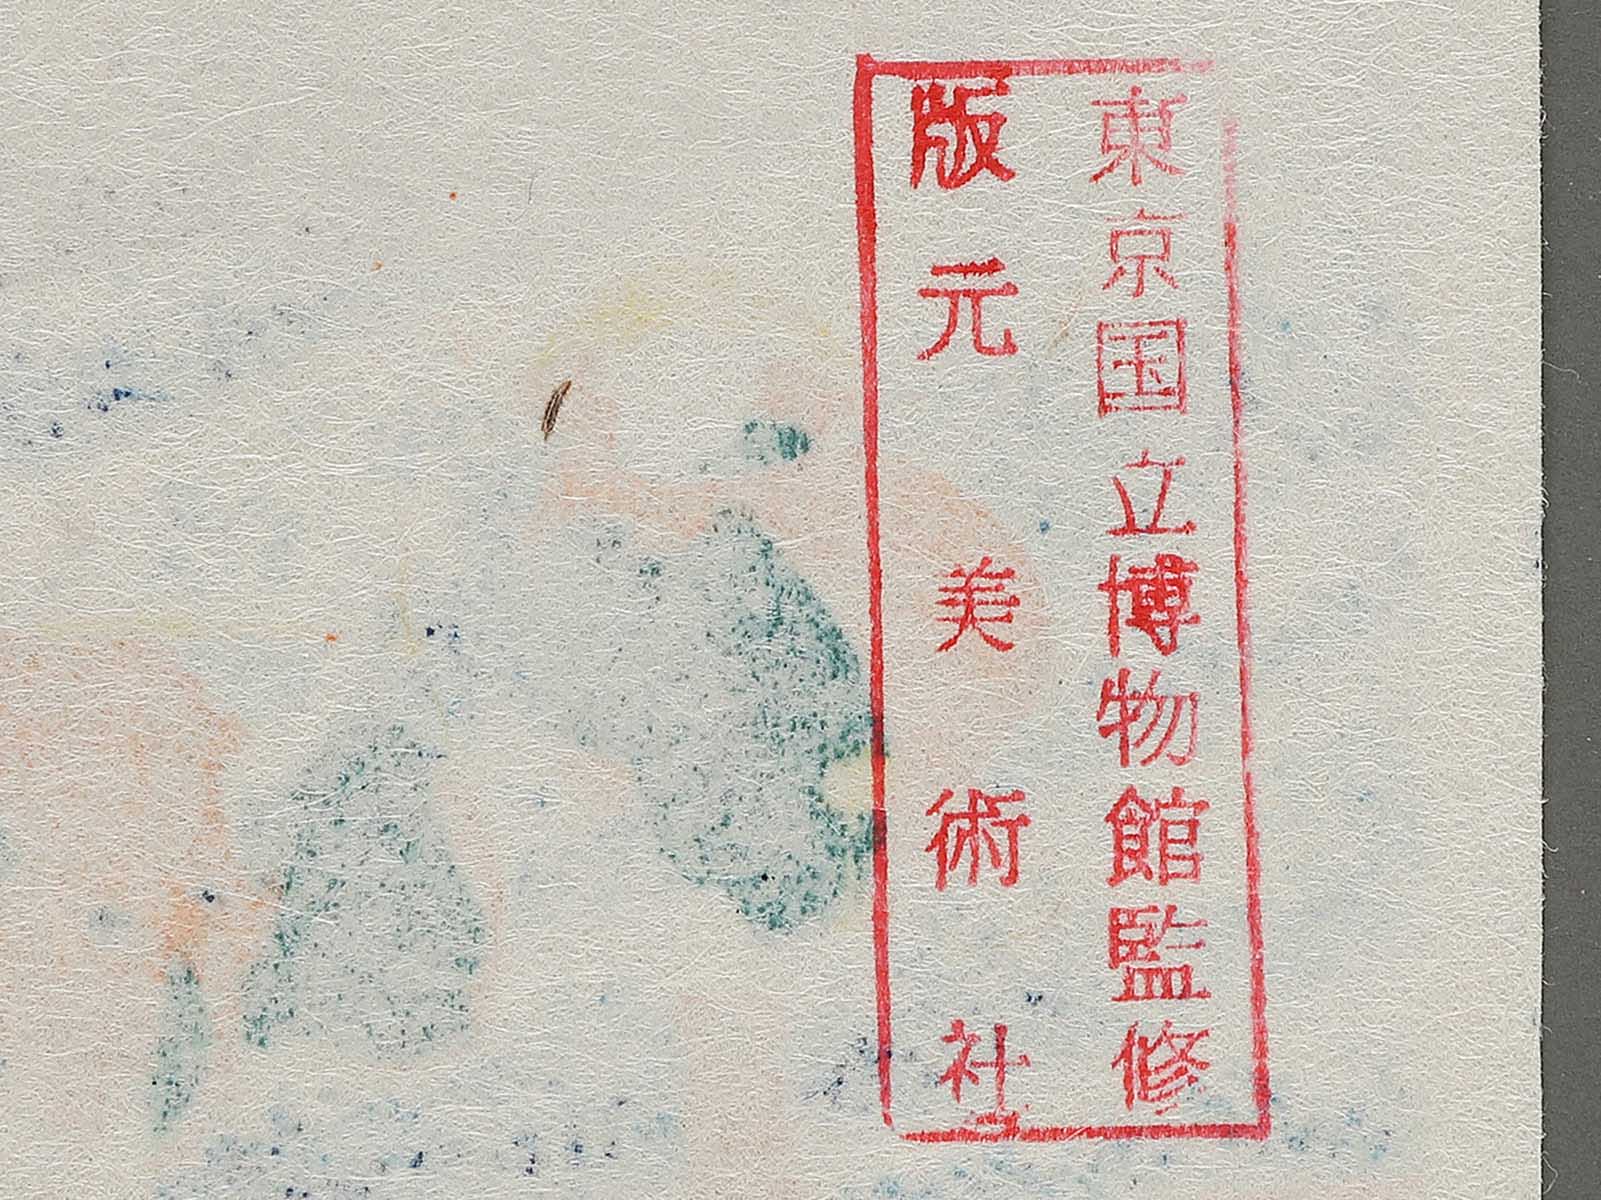 東京国立博物館監修
版元美術社